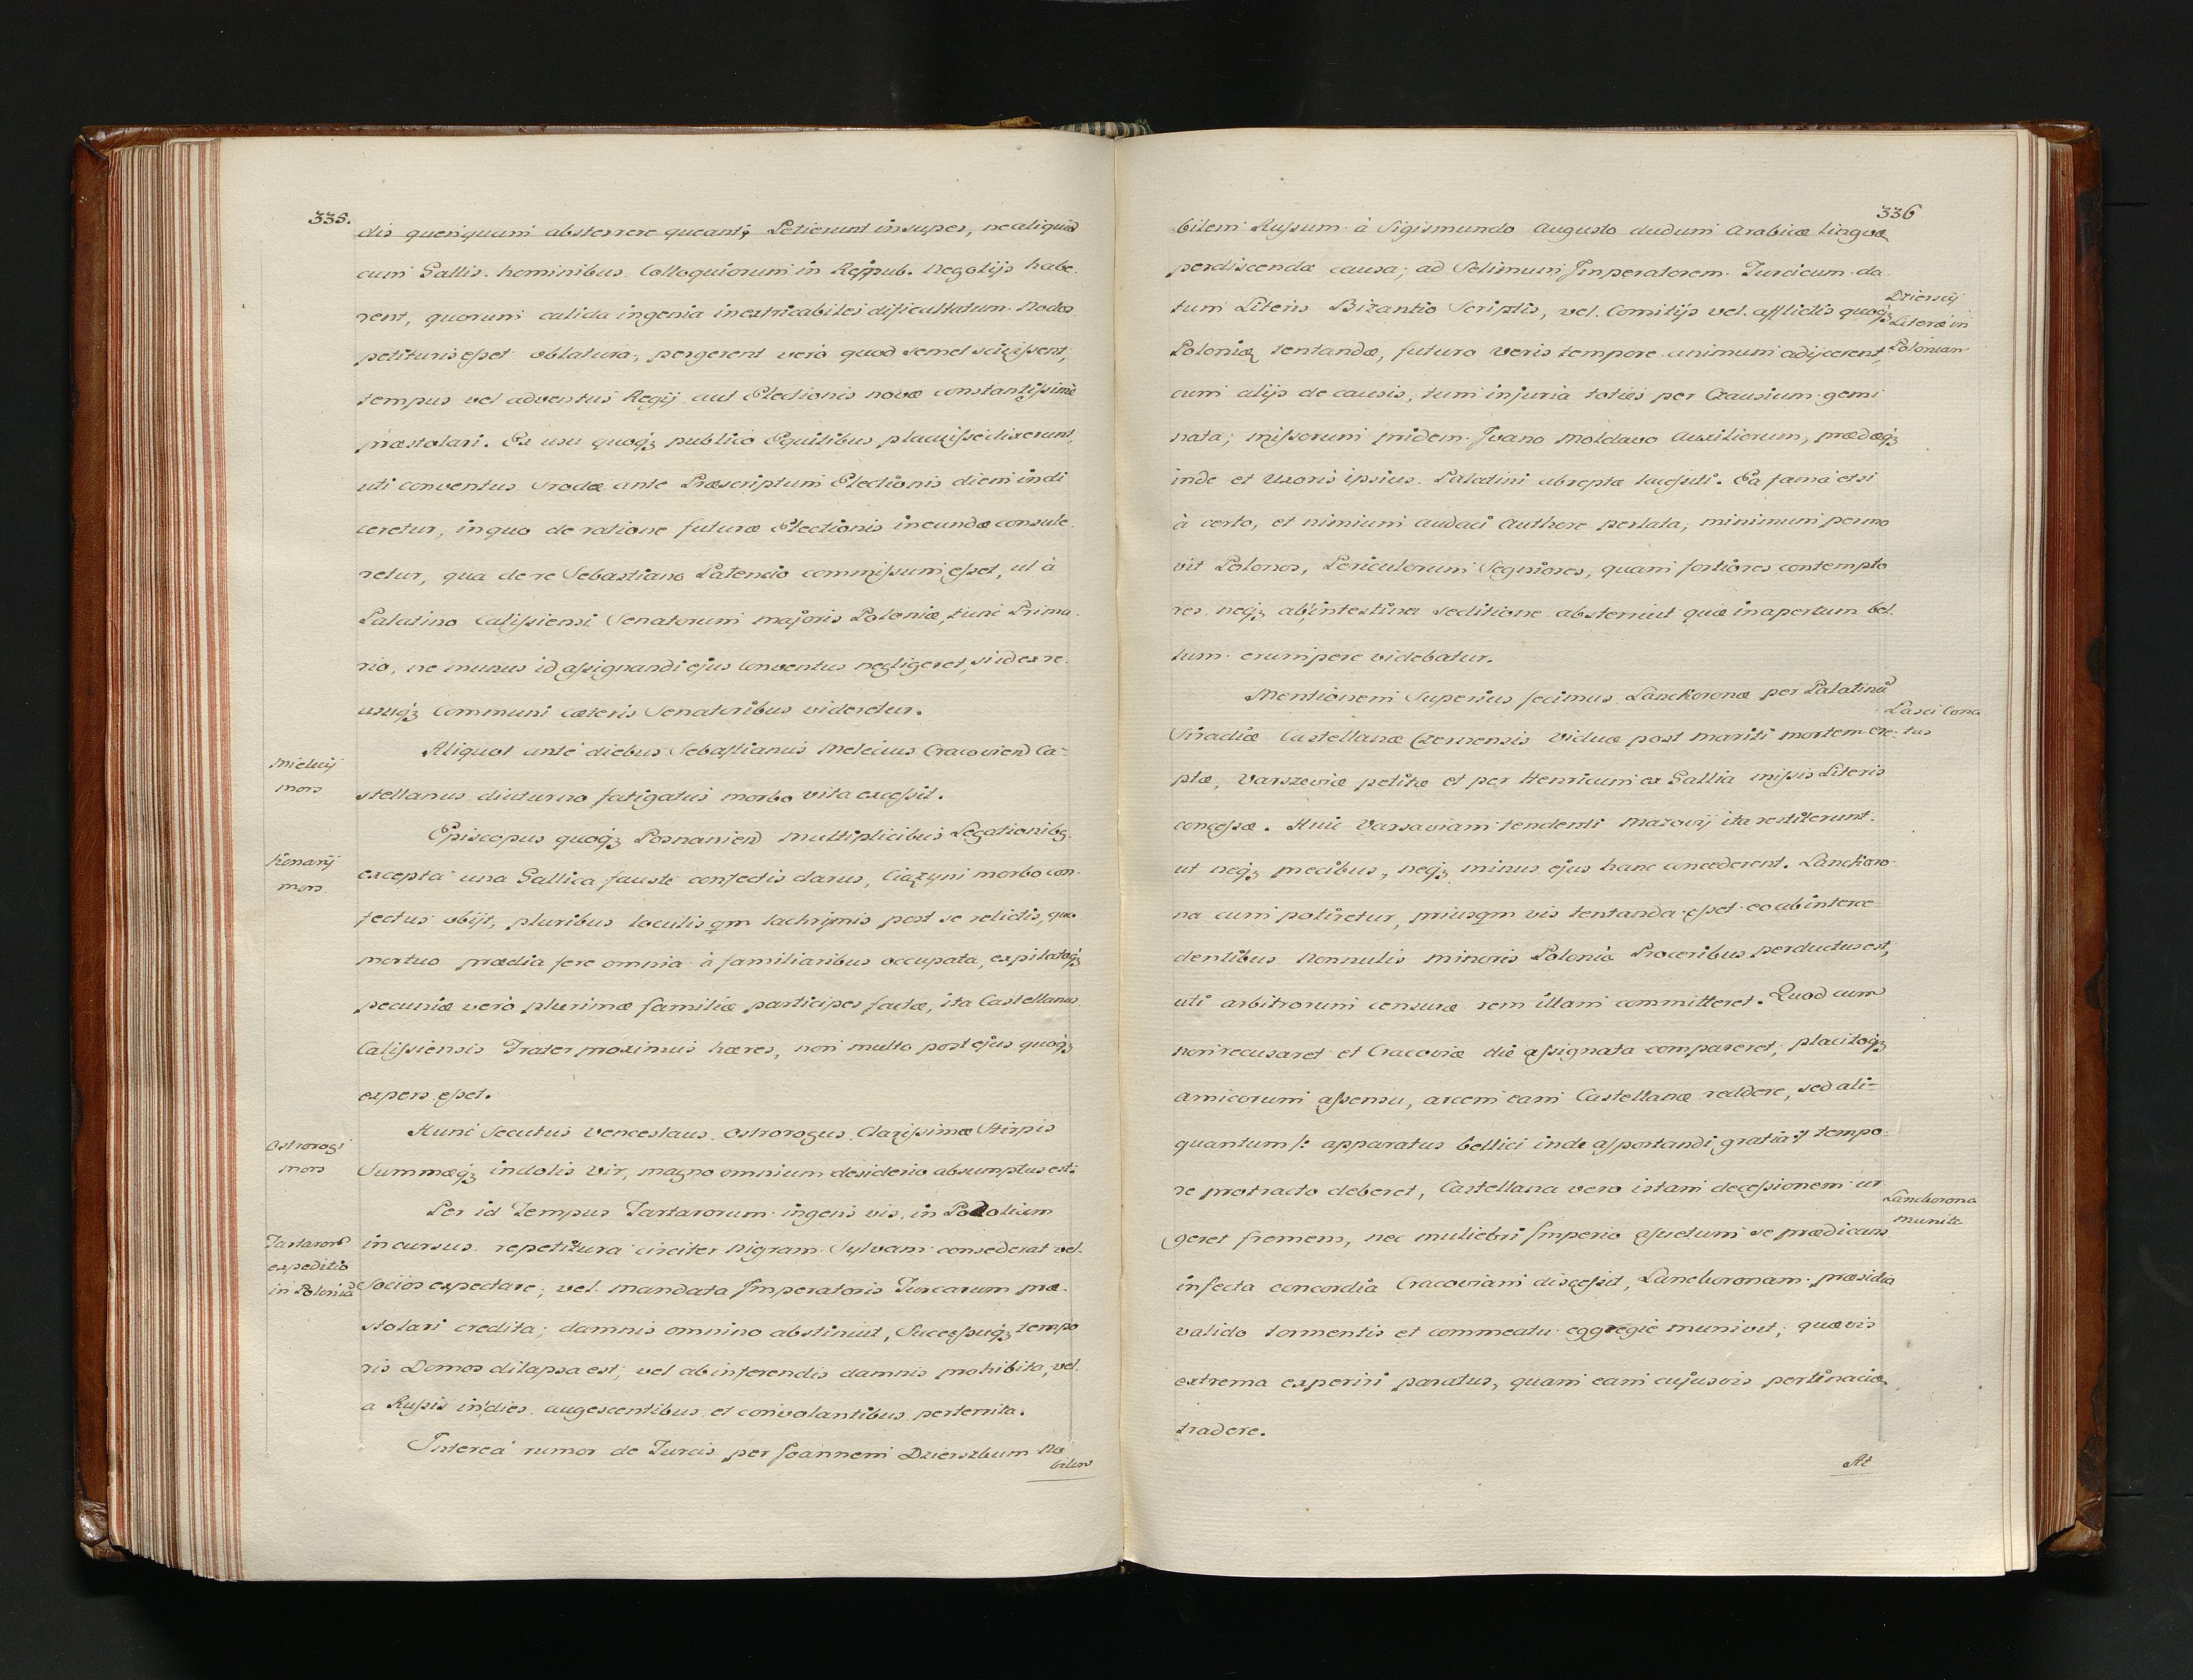 335.
dis quenquam absterrere queant; Petierunt insuper, ne aliquid
cum Gallis hominibus Colloquiorum in Reipub. Negotijs habe
rent, quorum calida ingenia inextricabiles dificultatum Nodos
petituris eſset oblatura, pergerent vero quod semel sciviſsent,
tempus vel adventus Regij aut Electionis novæ constantiſsimè
præstolari. Ex usu quoqꝫ publico Equitibus placuiſse dixerunt,
uti conventus Srodæ ante Præscriptum Electionis diem indi
ceretur, in quo de ratione futuræ Electionis ineundæ consule
retur, qua de re Sebastiano Latencio commiſsum eſset, ut à
Palatino Caliſsiensi Senatorum majoris Poloniæ, tunc Prima
rio, ne munus id aſsignandi ejus Conventus negligeret, si id ex re
usuqꝫ Communi cæteris Senatoribus videretur.
Mielecij
mors
Aliquot ante diebus Sebaſtianus Melecius Cracovien Ca-
stellanus diuturno fatigatus morbo vita exceſsit.
Konarij
mors
Episcopus quoqꝫ Posnanien multiplicibus Legationibꝫ
excepta una Gallica fauste confectis clarus, Ciazyni morbo con
fectus obijt, pluribus loculis qm lachrymis post se relictis, quo
mortuo prædia fere omnia à familiaribus occupata, expilataqꝫ
pecuniæ verò plurimæ familiæ participes factæ, ita Castellanus
Caliſsiensis Frater proximus hæres, non multo post ejus quoqꝫ
expers eſset.
Ostrorogi
mors
Hunc Secutus Venceslaus Ostrorogus Clariſsimæ Stirpis
Summæqꝫ indolis Vir, magno omnium desiderio absumptus est:
Tartaror
expeditio
in Poloniã
Per id Tempus Tartarorum ingens vis, in Podolium
incursus repetitura circiter Nigram Sylvam consederat vel
Socios expectare, vel mandata Imperatoris Turcarum præ
stolari credita; damnis omnino abstinuit, Succeſsuqꝫ tempo
ris Domos dilapsa est, vel ab inferendis damnis prohibita, vel
a Ruſsis in dies augescentibus et convolantibus perterrita.
Interea rumor de Turcis per Joannem Dzierszbum No
bilem
336
bilem Ruſsum à Sigismundo Augusto dudum Arabicæ Linguæ
perdiscendæ causa, ad Selimum Imperatorem Turcicum da
tum Literis Bizantio Scriptis, vel Comitijs vel afflictis quoqꝫ
Poloniæ tentandæ, futuro veris tempore animum adijcerent,
Dziersij
Literæ in
Polonian
cum alijs de causis, tum injuria toties per Crausium gemi
nata; miſsorum pridem Ivano Moldavo Auxiliorum, prædæqꝫ
inde et Uxoris ipsius Palatini abreptæ laceſsiti. Ea fama etsi
à certo, et nimium audaci Authore perlata, minimum permo
vit Polonos, Periculorum Segniores, quam fortiores contempto
res neqꝫ ab intestina seditione absterruit quæ in apertum bel
lum erumpere videbatur.
Mentionem Superius fecimus Lanckoronæ per Palatinũ
Siradiæ Castellanæ Czernensis viduæ post mariti mortem ere-
Lasci Cona
tus
ptæ, Varszeviæ petitæ et per Henricum ex Gallia miſsis Literis
conceſsæ. Huic Varsaviam tendenti Mazovij ita restiterunt
ut neqꝫ precibus, neqꝫ minus ejus hanc concederent. Lanckoro-
na cum potiretur, priusqm vis tentanda eſset eo ab interce
dentibus Nonnulis minoris Polonia Proceribus perductus est,
uti arbitrorum censuræ rem illam committeret. Quod cum
non recusaret et Cracoviæ die aſsignata compareret, placitoqꝫ
amicorum aſsensu, arcem eam Castellanæ reddere, sed ali-
quantum /: apparatus bellici inde aſportandi gratia :/ tempo
re protracto deberet, Castellana vero istam deceſsionem ur
geret fremens, nec muliebri Imperio aſsuetum se prædicans
Lanckorona
munita
infecta concordia Cracoviam disceſsit, Lanckoronam præsidio
valido tormentis et commeatu eggregie munivit, quævis
extrema experiri paratus, quam eam cujusvis pertinaciæ
tradere.
At